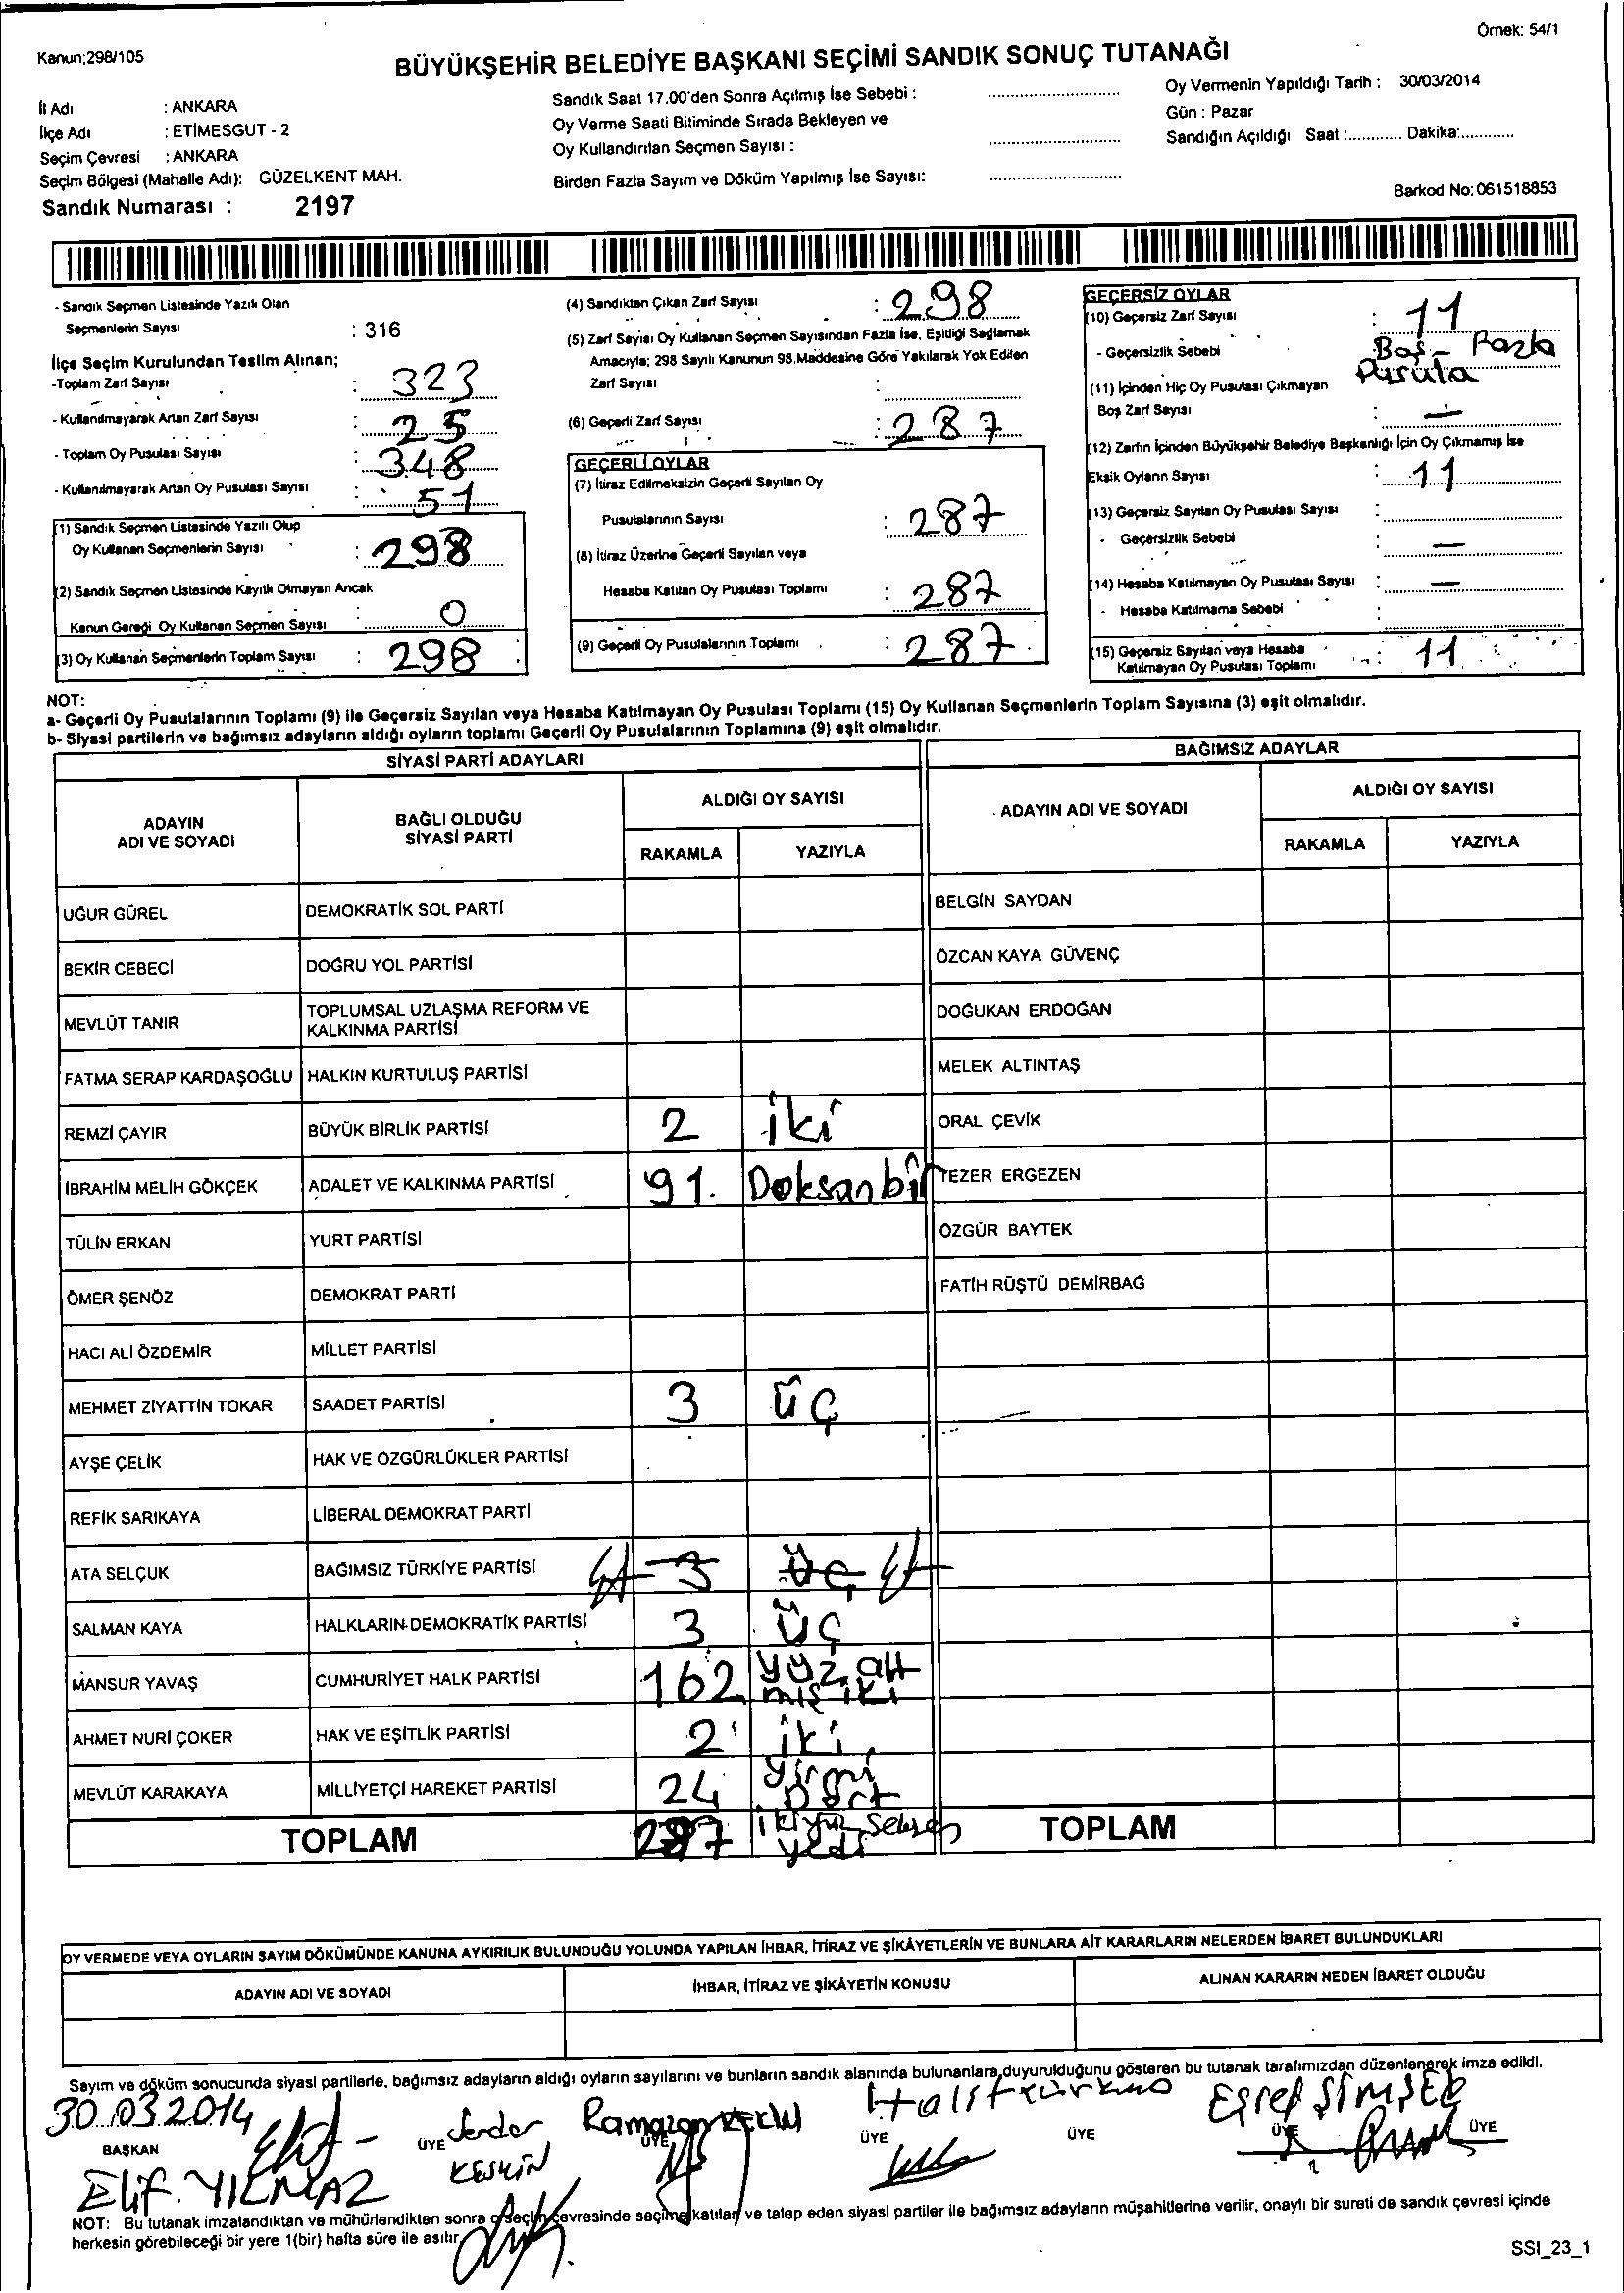 Örnek: 54/1
Kanun;298/105
BÜYÜKŞEHİR BELEDİYE BAŞKANI SEÇİMİ SANDIK SONUÇ TUTANAĞI
İl Adı : ANKARA
İlçe Adı : ETİMESGUT - 2
Seçim Çevresi : ANKARA
Seçim Bölgesi (Mahalle Adı): GÜZELKENT MAH.
Sandık Numarası : 2197
Sandık Saat 17.00'den Sonra Açılmış İse Sebebi :
Oy Verme Saati Bitiminde Sırada Bekleyen ve
Oy Kullandırılan Seçmen Sayısı :
Birden Fazla Sayım ve Döküm Yapılmış İse Sayısı:
Oy Vermenin Yapıldığı Tarih : 30/03/2014
Gün : Pazar
Sandığın Açıldığı Saat :............ Dakika:............
Barkod No: 061518853
- Sandık Seçmen Listesinde Yazılı Olan
Seçmenlerin Sayısı : 316
İlçe Seçim Kurulundan Teslim Alınan;
-Toplam Zarf Sayısı : 323
- Kullanılmayarak Artan Zarf Sayısı : 25
- Toplam Oy Pusulası Sayısı : 348
- Kullanılmayarak Artan Oy Pusulası Sayısı : 51
(1) Sandık Seçmen Listesinde Yazılı Olup
Oy Kullanan Seçmenlerin Sayısı : 298
(2) Sandık Seçmen Listesinde Kayıtlı Olmayan Ancak
Kanun Gereği Oy Kullanan Seçmen Sayısı : 0
(3) Oy Kullanan Seçmenlerin Toplam Sayısı : 298
(4) Sandıktan Çıkan Zarf Sayısı : 298
(5) Zarf Sayısı Oy Kullanan Seçmen Sayısından Fazla İse, Eşitliği Sağlamak
Amacıyla; 298 Sayılı Kanunun 98.Maddesine Göre Yakılarak Yok Edilen
Zarf Sayısı :
(6) Geçerli Zarf Sayısı : 287
GEÇERLİ OYLAR
(7) İtiraz Edilmeksizin Geçerli Sayılan Oy
Pusulalarının Sayısı : 287
(8) İtiraz Üzerine Geçerli Sayılan veya
Hesaba Katılan Oy Pusulası Toplamı : 287
(9) Geçerli Oy Pusulalarının Toplamı : 287
GEÇERSİZ OYLAR
(10) Geçersiz Zarf Sayısı : 11
- Geçersizlik Sebebi Boş - Fazla
Pusula
(11) İçinden Hiç Oy Pusulası Çıkmayan
Boş Zarf Sayısı : —
(12) Zarfın İçinden Büyükşehir Belediye Başkanlığı İçin Oy Çıkmamış İse
Eksik Oyların Sayısı : 11
(13) Geçersiz Sayılan Oy Pusulası Sayısı :
- Geçersizlik Sebebi : —
(14) Hesaba Katılmayan Oy Pusulası Sayısı : —
- Hesaba Katılmama Sebebi :
(15) Geçersiz Sayılan veya Hesaba
Katılmayan Oy Pusulası Toplamı : 11
NOT:
a- Geçerli Oy Pusulalarının Toplamı (9) ile Geçersiz Sayılan veya Hesaba Katılmayan Oy Pusulası Toplamı (15) Oy Kullanan Seçmenlerin Toplam Sayısına (3) eşit olmalıdır.
b- Siyasi partilerin ve bağımsız adayların aldığı oyların toplamı Geçerli Oy Pusulalarının Toplamına (9) eşit olmalıdır.
SİYASİ PARTİ ADAYLARI
ADAYIN ADI VE SOYADI
BAĞLI OLDUĞU SİYASİ PARTİ
ALDIĞI OY SAYISI
RAKAMLA YAZIYLA
UĞUR GÜREL DEMOKRATİK SOL PARTİ
BEKİR CEBECİ DOĞRU YOL PARTİSİ
MEVLÜT TANIR TOPLUMSAL UZLAŞMA REFORM VE KALKINMA PARTİSİ
FATMA SERAP KARDAŞOĞLU HALKIN KURTULUŞ PARTİSİ
REMZİ ÇAYIR BÜYÜK BİRLİK PARTİSİ 2 iki
İBRAHİM MELİH GÖKÇEK ADALET VE KALKINMA PARTİSİ 91. Doksanbir
TÜLİN ERKAN YURT PARTİSİ
ÖMER ŞENÖZ DEMOKRAT PARTİ
HACI ALİ ÖZDEMİR MİLLET PARTİSİ
MEHMET ZİYATTİN TOKAR SAADET PARTİSİ 3 üç
AYŞE ÇELİK HAK VE ÖZGÜRLÜKLER PARTİSİ
REFİK SARIKAYA LİBERAL DEMOKRAT PARTİ
ATA SELÇUK BAĞIMSIZ TÜRKİYE PARTİSİ 3 üç
SALMAN KAYA HALKLARIN DEMOKRATİK PARTİSİ 3 üç
MANSUR YAVAŞ CUMHURİYET HALK PARTİSİ 162 yüz alt
mış iki
AHMET NURİ ÇOKER HAK VE EŞİTLİK PARTİSİ 2 iki
MEVLÜT KARAKAYA MİLLİYETÇİ HAREKET PARTİSİ 24 yirmi
Dört
TOPLAM 287 ikiyüz seksen
yedi
BAĞIMSIZ ADAYLAR
ADAYIN ADI VE SOYADI
ALDIĞI OY SAYISI
RAKAMLA YAZIYLA
BELGİN SAYDAN
ÖZCAN KAYA GÜVENÇ
DOĞUKAN ERDOĞAN
MELEK ALTINTAŞ
ORAL ÇEVİK
TEZER ERGEZEN
ÖZGÜR BAYTEK
FATİH RÜŞTÜ DEMİRBAĞ
TOPLAM
OY VERMEDE VEYA OYLARIN SAYIM DÖKÜMÜNDE KANUNA AYKIRILIK BULUNDUĞU YOLUNDA YAPILAN İHBAR, İTİRAZ VE ŞİKÂYETLERİN VE BUNLARA AİT KARARLARIN NELERDEN İBARET BULUNDUKLARI
ADAYIN ADI VE SOYADI İHBAR, İTİRAZ VE ŞİKÂYETİN KONUSU ALINAN KARARIN NEDEN İBARET OLDUĞU
Sayım ve döküm sonucunda siyasi partilerle, bağımsız adayların aldığı oyların sayılarını ve bunların sandık alanında bulunanlara duyurulduğunu gösteren bu tutanak tarafımızdan düzenlenerek imza edildi.
30.03.2014
BAŞKAN ÜYE ÜYE ÜYE ÜYE ÜYE ÜYE
Elif YILMAZ
Serdar
KESKİN
Ramazan
Halit
Eşref ŞİMŞEK
NOT: Bu tutanak imzalandıktan ve mühürlendikten sonra o seçim çevresinde seçime katılan ve talep eden siyasi partiler ile bağımsız adayların müşahitlerine verilir, onaylı bir sureti de sandık çevresi içinde
herkesin görebileceği bir yere 1(bir) hafta süre ile asılır.
SSI_23_1